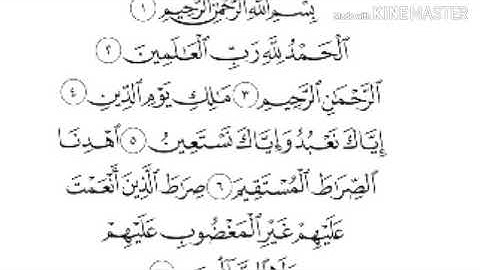 Made with KINEMASTER
بِسْمِ ٱللَّهِ ٱلرَّحْمَٰنِ ٱلرَّحِيمِ ١
ٱلْحَمْدُ لِلَّهِ رَبِّ ٱلْعَٰلَمِينَ ٢
ٱلرَّحْمَٰنِ ٱلرَّحِيمِ ٣ مَٰلِكِ يَوْمِ ٱلدِّينِ ٤
إِيَّاكَ نَعْبُدُ وَإِيَّاكَ نَسْتَعِينُ ٥ ٱهْدِنَا
ٱلصِّرَٰطَ ٱلْمُسْتَقِيمَ ٦ صِرَٰطَ ٱلَّذِينَ أَنْعَمْتَ
عَلَيْهِمْ غَيْرِ ٱلْمَغْضُوبِ عَلَيْهِمْ